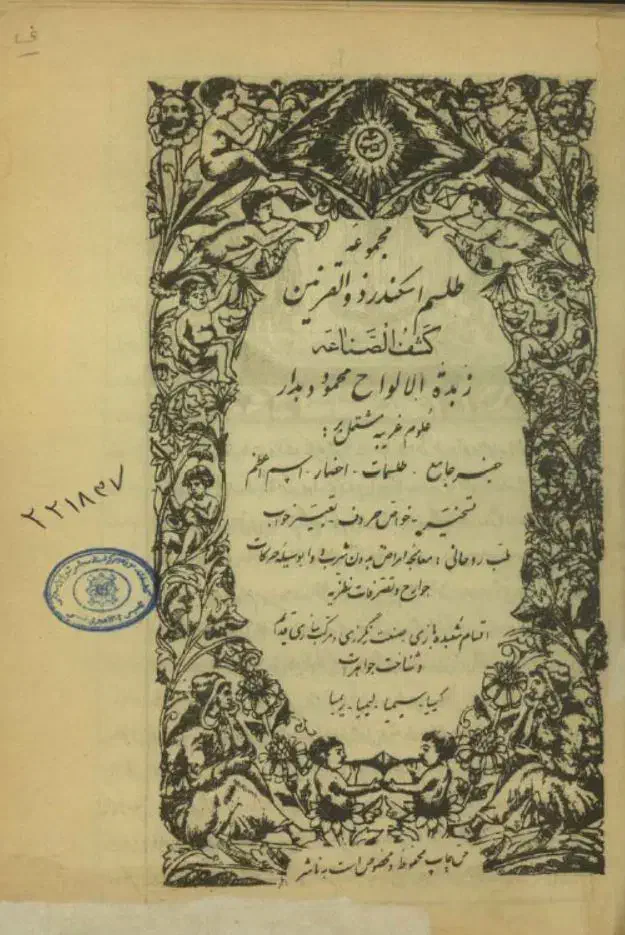 مجموعه
طلسم اسکندر ذوالقرنین
کشف الصناعه
زبدة الالواح محمود دهدار
علوم غریبه مشتمل بر:
جفر جامع - طلسمات - احضار - اسم اعظم
تسخیر - خواص حروف - تعبیر خواب
طب روحانی: معالجه امراض بدون شرب دوا بوسیله حرکات
جوارح و تصرفات نظریه
اقسام شعبده بازی، صنعت رنگرزی و مرکب سازی قدیم
و شناخت جواهرات
کیمیا - سیمیا - لیمیا - ریمیا
حق چاپ محفوظ و مخصوص است به ناشر
۲۲۱۸۳۷